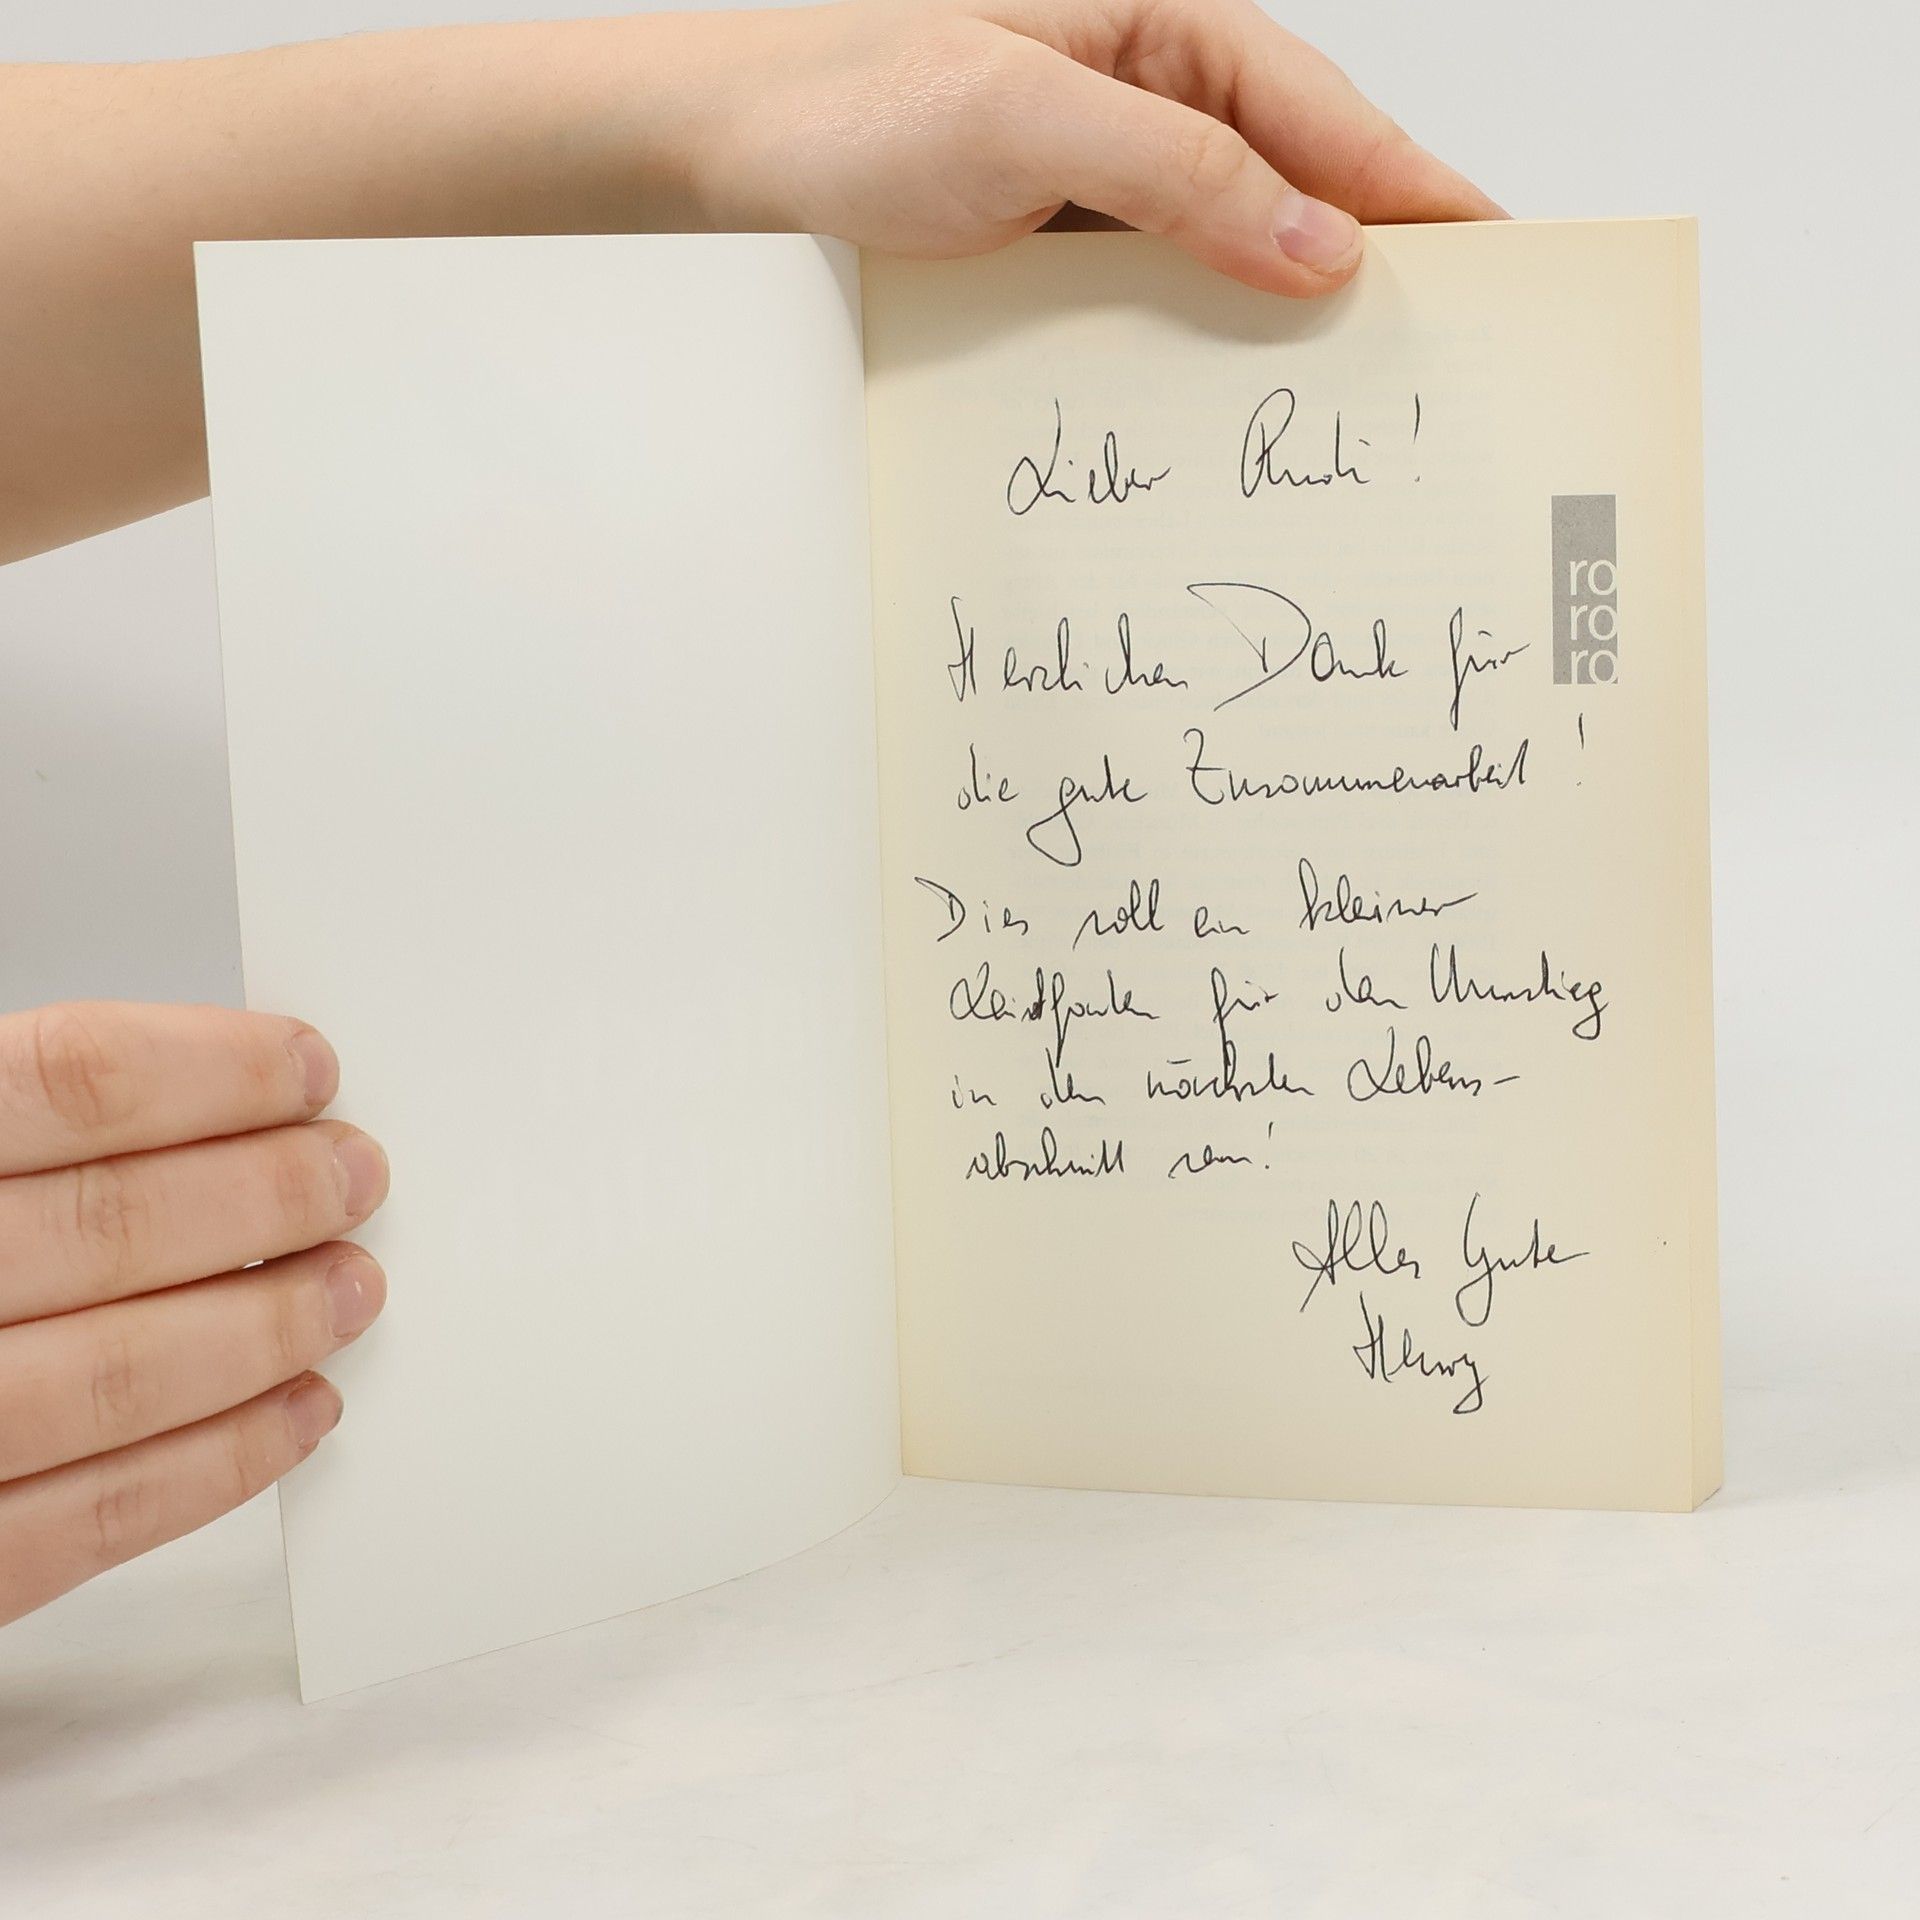 Lieber Rudi!
ro
ro
ro
Herzlichen Dank für
die gute Zusammenarbeit!
Dies soll ein kleiner
Leidfaden für den Umstieg
in den nächsten Lebens-
abschnitt sein!
Alles Gute